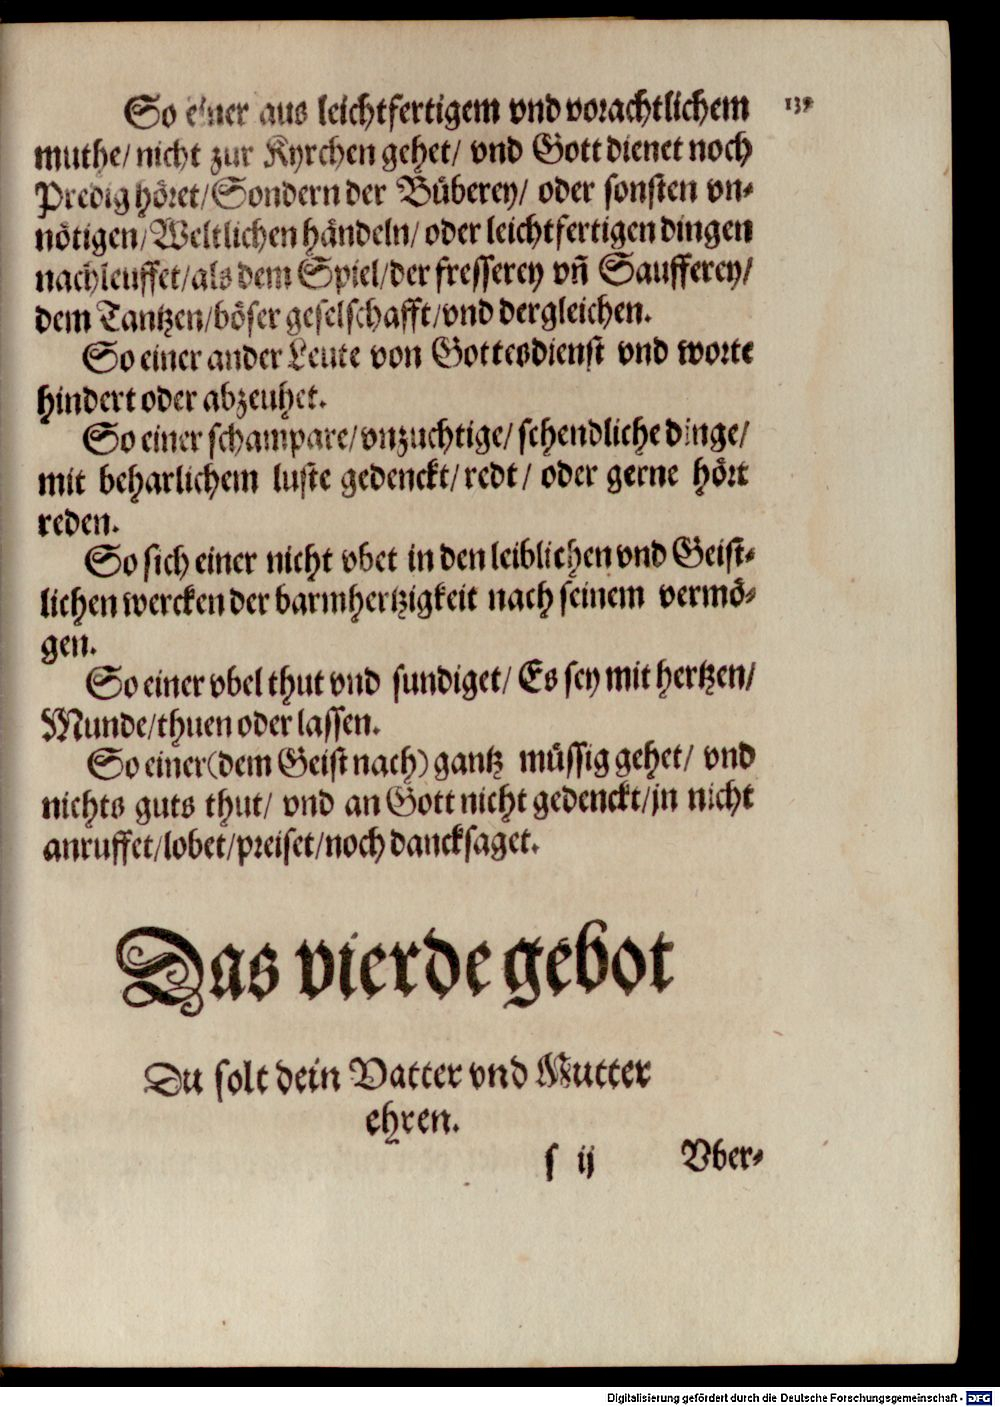 So einer aus leichtfertigem vnd vorachtlichem 139
muthe/ nicht zur Kyrchen gehet/ vnd Gott dienet noch
Predig höret/ Sondern der Büberey/ oder sonsten vn-
nötigen/ Weltlichen händeln/ oder leichtfertigen dingen
nachleuffet/ als dem Spiel/ der fresserey vñ Saufferey/
dem Tantzen/ böser geselschafft/ vnd dergleichen.
So einer ander Leute von Gottesdienst vnd worte
hindert oder abzeuhet.
So einer schampare/ vnzuchtige/ schendliche dinge/
mit beharlichem luste gedenckt/ redt/ oder gerne hört
reden.
So sich einer nicht vbet in den leiblichen vnd Geist-
lichen wercken der barmhertzigkeit nach seinem vermö-
gen.
So einer vbel thut vnd sundiget/ Es sey mit hertzen/
Munde/ thuen oder lassen.
So einer (dem Geist nach) gantz müssig gehet/ vnd
nichts guts thut/ vnd an Gott nicht gedenckt/ jn nicht
anruffet/ lobet/ preiset/ noch dancksaget.
Das vierde gebot
Du solt dein Vatter vnd Mutter
ehren.
s ij Vber-
Digitalisierung gefördert durch die Deutsche Forschungsgemeinschaft - DFG